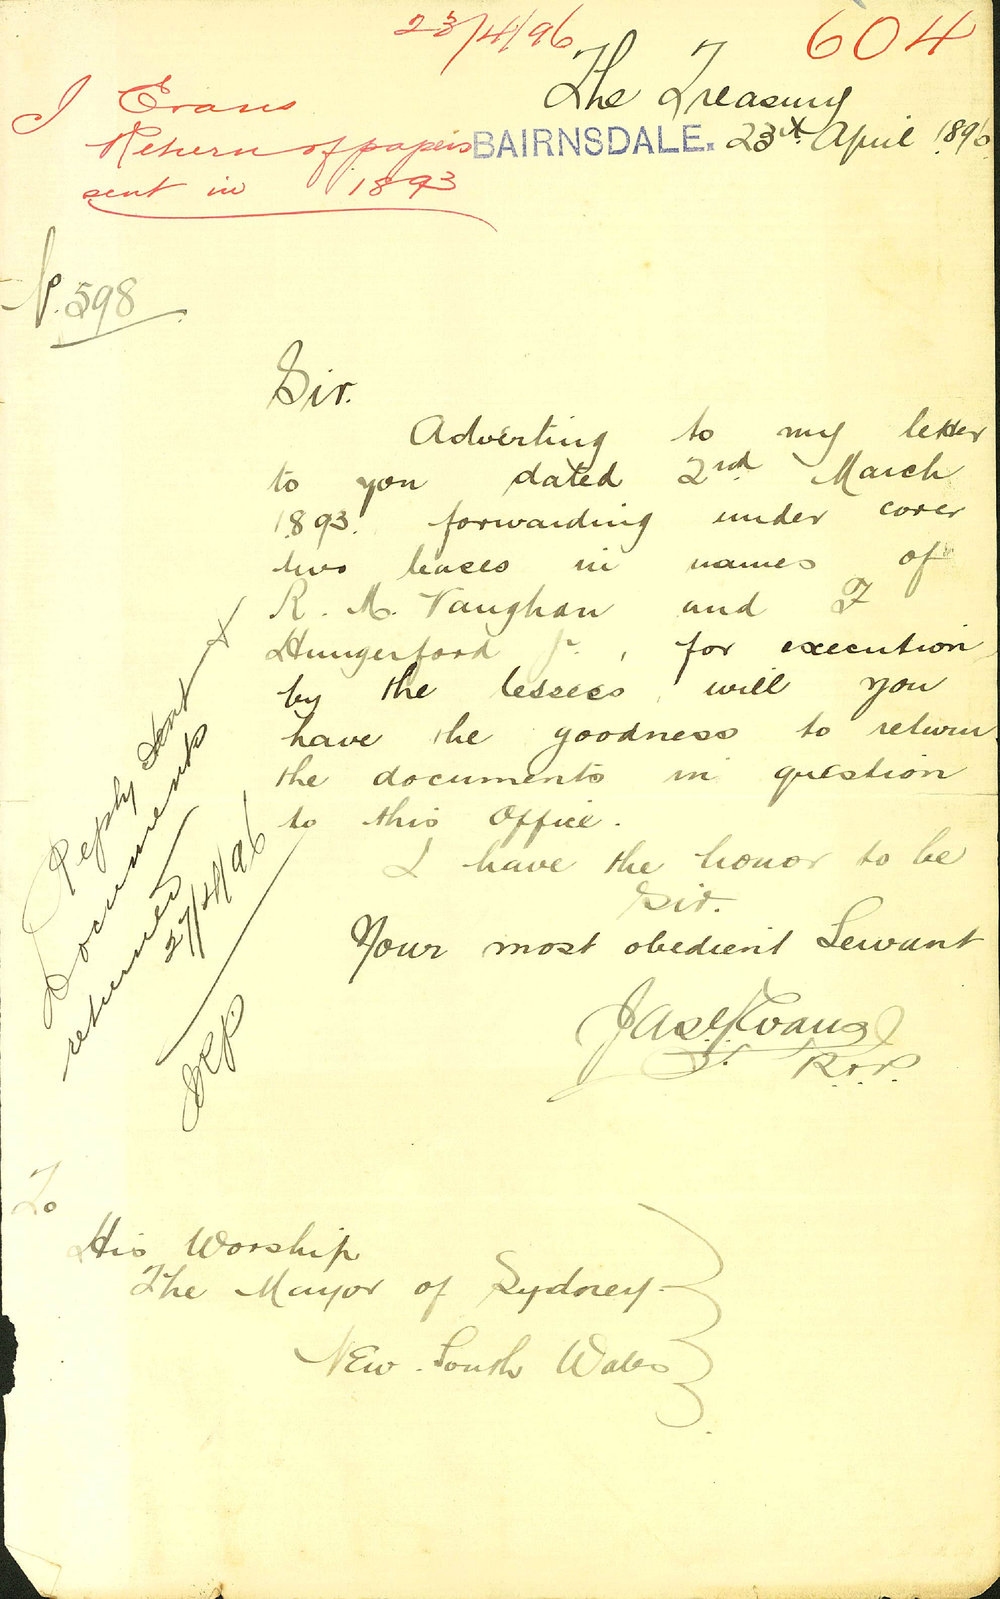 23/4/96
604
J Evans
Return of papers
sent in 1893
The Treasury
BAIRNSDALE. 23rd April 1896
No. 598
Sir.
Adverting to my letter
to you dated 2nd March
1893. forwarding under cover
two leases in names of
R. M. Vaughan and F
Hungerford Jr., for execution
by the lessees, will you
have the goodness to return
the documents in question
to this Office.
I have the honor to be
Sir.
Your most obedient Servant
Jas Evans
R.&P.
Reply sent &
Documents
returned
27/4/96
To
His Worship
The Mayor of Sydney
New South Wales